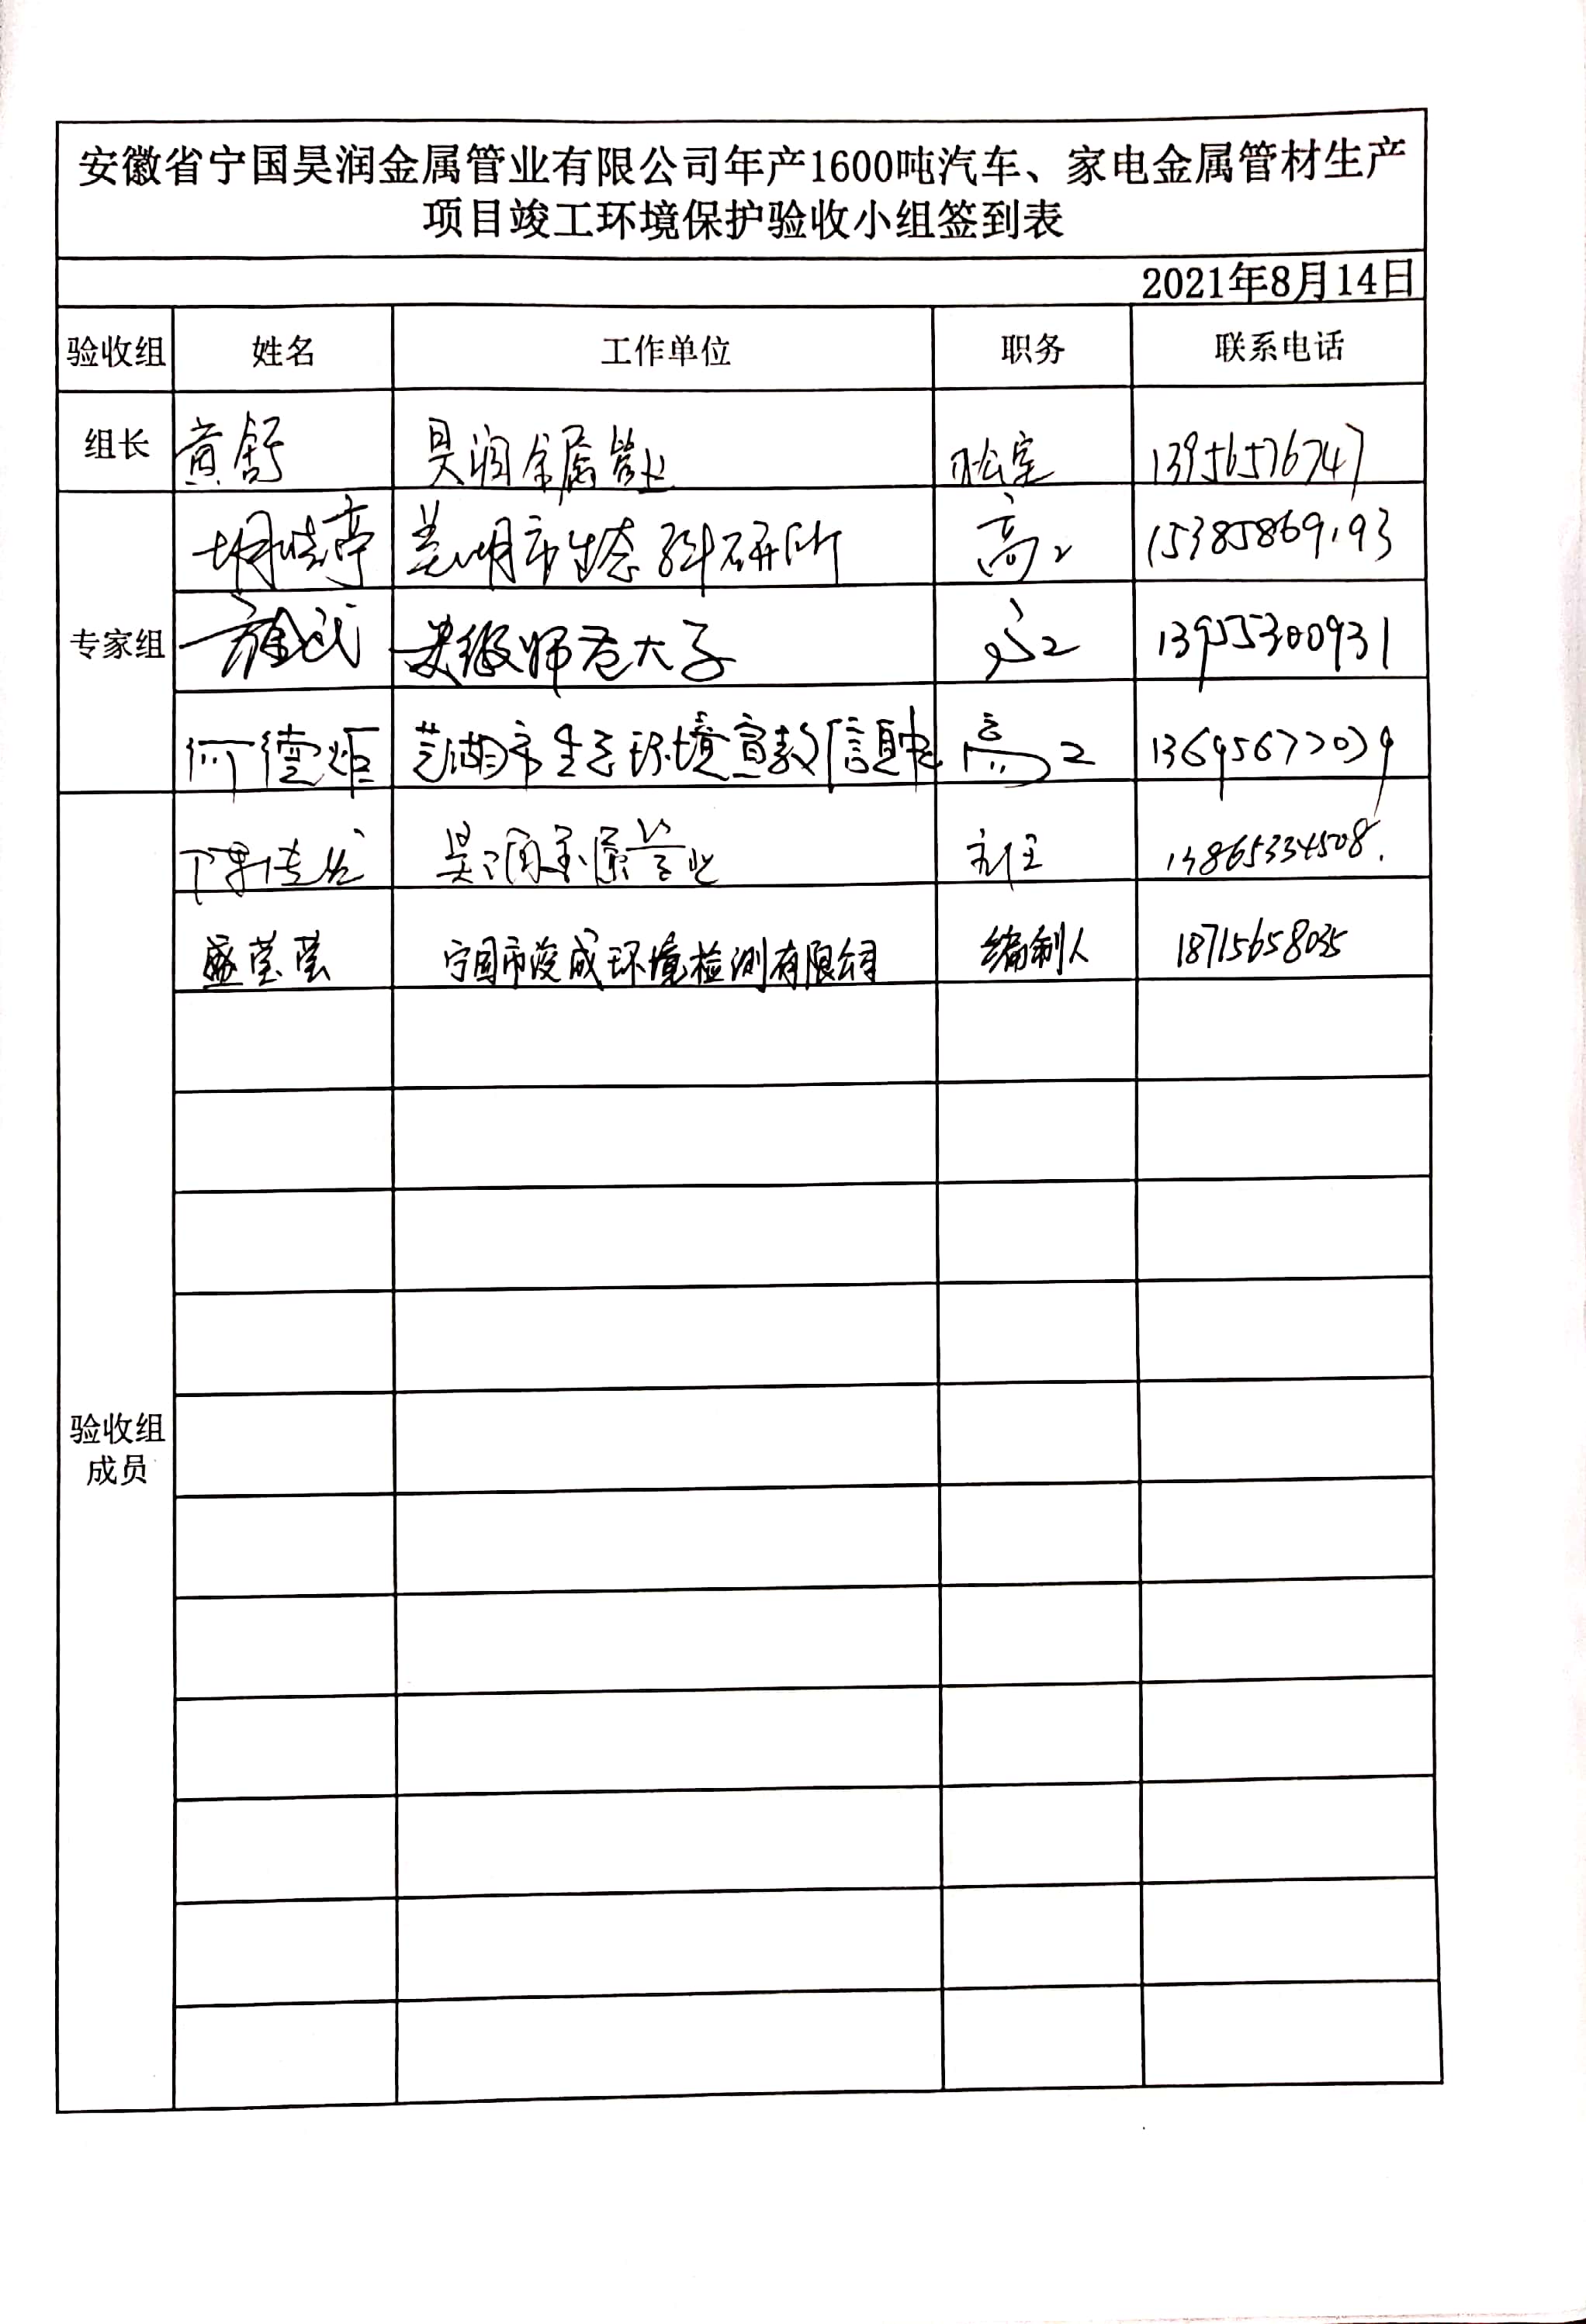 安徽省宁国昊润金属管业有限公司年产1600吨汽车、家电金属管材生产
项目竣工环境保护验收小组签到表
2021年8月14日
验收组 姓名 工作单位 职务 联系电话
组长 黄舒 昊润金属管业 办公室 13956576747
胡晓亭 芜湖市生态科研所 高工 15385869193
专家组 安徽师范大学 高工 13955300931
何德炬 芜湖市生态环境宣教信息中心 高工 13695677039
昊润金属管业 主任 13865334508.
盛莹莹 宁国市浚成环境检测有限公司 编制人 18715658035
验收组
成员